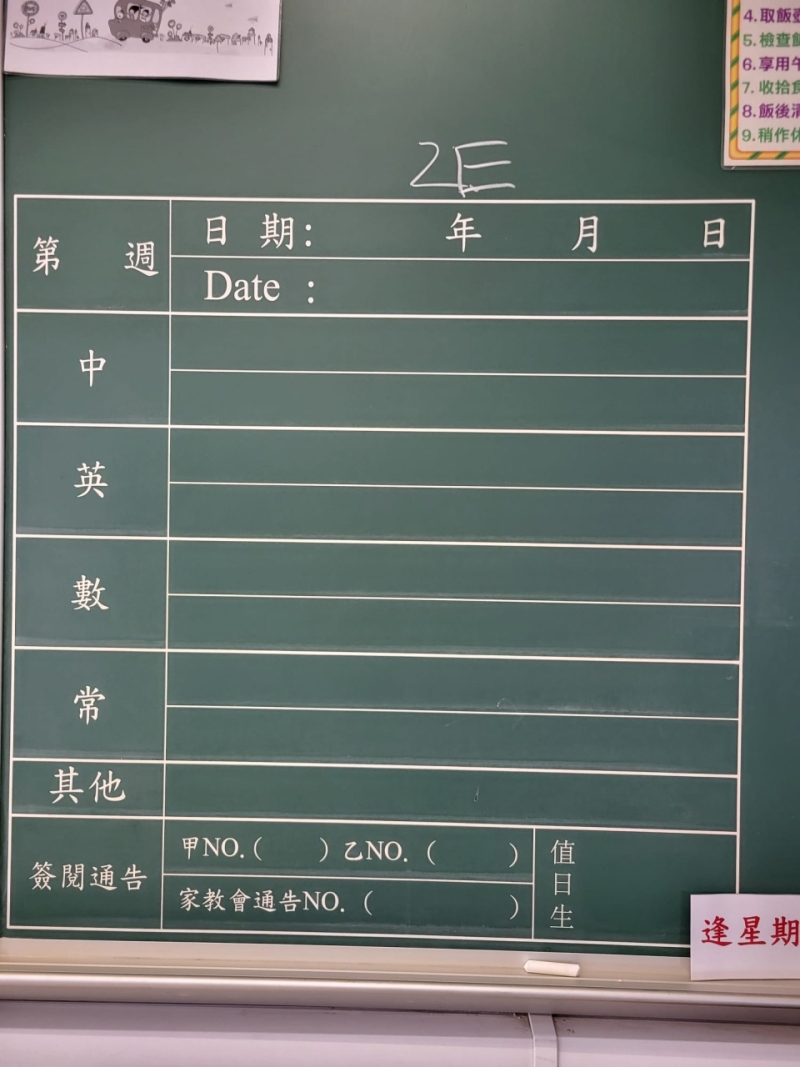 4.取飯
5.檢查
6.享用午
7.收拾食
8.飯後清
9.稍作休
2E
第 週
日 期: 年 月 日
Date :
中
英
數
常
其他
簽閱通告
甲NO.( ) 乙NO. ( )
家教會通告NO. ( )
值日生
逢星期